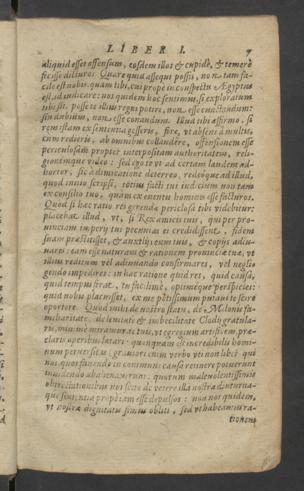 LIBER I. 7
aliquid esset assensum, eosdem illos & cupidè, & temerè
fecisse dicturos. Quare quid assequi possis, non tam fa-
cile est nobis, quàm tibi, cui propè in conspectu Ægyptus
est, iudicare: nos quidem hoc sentimus, si exploratum
tibi sit, posse te illius regni potiri, non esse cunctandum:
sin dubium, non esse conandum. Illud tibi affirmo, si
rem istam ex sententia gesseris, fore, vt absens à multis,
cum redieris, ab omnibus collaudere, offensionem esse
periculosam propter interpositam authoritatem, reli-
gionemque video: sed ego te vt ad certam laudem ad-
hortor, sic à dimicatione deterreo, redeoque ad illud,
quod initio scripsi, totius facti tui iudicium non tam
ex consilio tuo, quàm ex euentu homines esse facturos.
Quod si hæc ratio rei gerendæ periculosa tibi videbitur;
placebat illud, vt, si Rex amicis tuis, qui per pro-
uinciam imperij tui pecunias ei credidissent, fidem
suam præstitisset, & auxilijs eum tuis, & copijs adiu-
uares: eam esse naturam & rationem prouinciæ tuæ, vt
illius reditum vel adiuuando confirmares, vel negli-
gendo impedires: in hac ratione quid res, quid causa,
quid tempus ferat, tu facilimè, optimeque perspicies:
quid nobis placuisset, ex me potissimum putaui te scire
oportere. Quod mihi de nostro statu, de Milonis fa-
miliaritate, de leuitate & imbecillitate Clodij gratula-
ris; minimè miramur, te tuis, vt egregium artificem, præ-
claris operibus lætari: quanquam est incredibilis homi-
num peruersitas, grauiori enim verbo vti non libet; qui
nos quos fauendo in communi causa retinere potuerunt
inuidendo abalienarunt: quorum maleuolentissimis
obtrectationibus nos scito de vetere illa nostra diuturna-
que sententia propè iam esse depulsos: non nos quidem,
vt nostræ dignitatis simus obliti, sed vt habeamus ra-
tionem